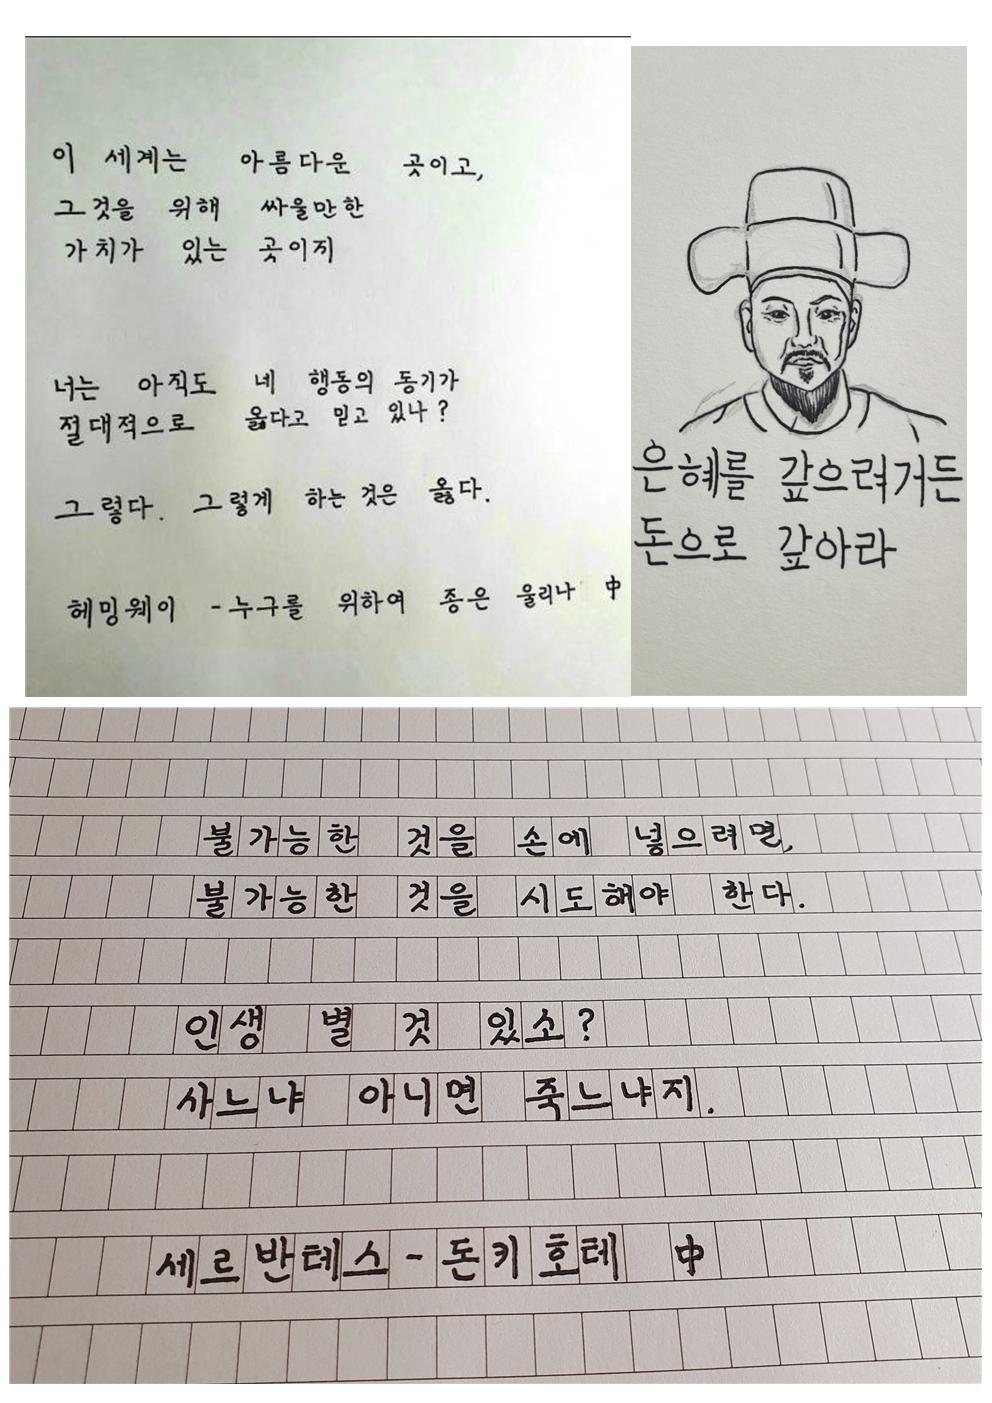 이 세계는 아름다운 곳이고,
그것을 위해 싸울만한
가치가 있는 곳이지
너는 아직도 네 행동의 동기가
절대적으로 옳다고 믿고 있나?
그렇다. 그렇게 하는 것은 옳다.
헤밍웨이 - 누구를 위하여 종은 울리나 中
은혜를 갚으려거든
돈으로 갚아라
불가능한 것을 손에 넣으려면,
불가능한 것을 시도해야 한다.
인생 별 것 있소?
사느냐 아니면 죽느냐지.
세르반테스 - 돈키호테 中